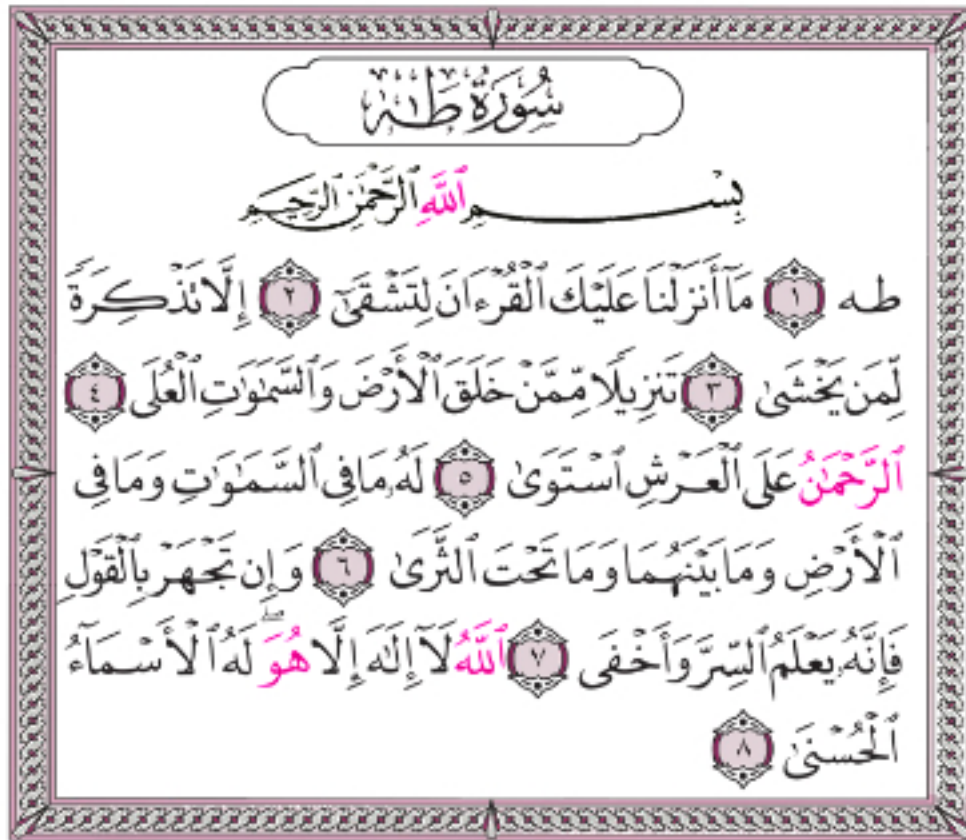 سُورَةُ طه
بِسْمِ ٱللَّهِ ٱلرَّحْمَٰنِ ٱلرَّحِيمِ
طه ١ مَآ أَنزَلْنَا عَلَيْكَ ٱلْقُرْءَانَ لِتَشْقَىٰٓ ٢ إِلَّا تَذْكِرَةً
لِّمَن يَخْشَىٰ ٣ تَنزِيلًا مِّمَّنْ خَلَقَ ٱلْأَرْضَ وَٱلسَّمَٰوَٰتِ ٱلْعُلَى ٤
ٱلرَّحْمَٰنُ عَلَى ٱلْعَرْشِ ٱسْتَوَىٰ ٥ لَهُۥ مَا فِي ٱلسَّمَٰوَٰتِ وَمَا فِي
ٱلْأَرْضِ وَمَا بَيْنَهُمَا وَمَا تَحْتَ ٱلثَّرَىٰ ٦ وَإِن تَجْهَرْ بِٱلْقَوْلِ
فَإِنَّهُۥ يَعْلَمُ ٱلسِّرَّ وَأَخْفَى ٧ ٱللَّهُ لَآ إِلَٰهَ إِلَّا هُوَۖ لَهُ ٱلْأَسْمَآءُ
ٱلْحُسْنَىٰ ٨